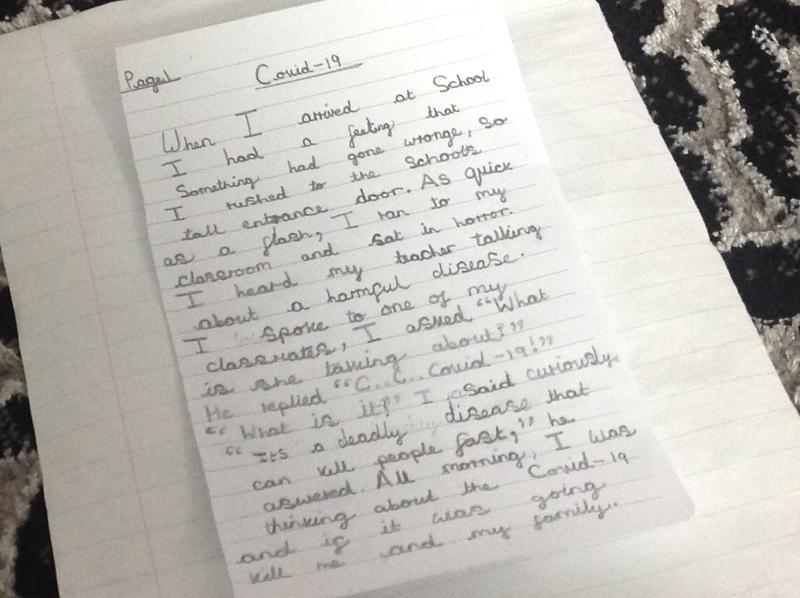 Page1
Covid-19
When I arrived at School
I had a feeling that
Something had gone wronge, so
I rushed to the schools
tall entrance door. As quick
as a flash, I ran to my
classroom and sat in horror.
I heard my teacher talking
about a harmful disease.
I spoke to one of my
classmates, I asked "What
is she talking about?"
He replied "C...C...Covid-19!"
"What is it?" I said curiously.
"Its a deadly disease that
can kill people fast," he
answered. All morning, I was
thinking about the Covid-19
and if it was going
kill me and my family.